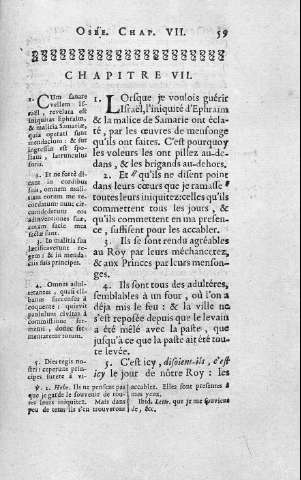 OSÉE. CHAP. VII. 59
CHAPITRE VII.
1. CUm sanare
vellem Is-
raël, revelata est
iniquitas Ephraim,
& malicia Samariæ,
quia operati sunt
mendacium : & fur
ingressus est spo-
lians, latrunculus
foris.
2. Et ne fortè di-
cant in cordibus
suis, omnem mali-
tiam eorum me re-
cordatum: nunc cir-
cumdederunt eos
adinventiones suæ,
coram facie mea
factæ sunt.
3. In malitia sua
lætificaverunt re-
gem : & in menda-
ciis suis principes.
4. Omnes adul-
terantes, quasi cli-
banus succensus à
coquente : quievit
paululum civitas à
commistione fer-
menti, donec fer-
mentaretur totum.
5. Dies regis no-
stri : cœperunt prin-
cipes furere à vi-
1. LOrsque je voulois guérir
Israël, l'iniquité d'Ephraïm
& la malice de Samarie ont écla-
té, par les œuvres de mensonge
qu'ils ont faites. C'est pourquoy
les voleurs les ont pillez au-de-
dans, & les brigands au-dehors.
2. Et qu'ils ne disent point
dans leurs cœurs que je ramasse
toutes leurs iniquitez: celles qu'ils
commettent tous les jours, &
qu'ils commettent en ma presen-
ce, suffisent pour les accabler.
3. Ils se sont rendu agréables
au Roy par leurs méchancetez,
& aux Princes par leurs menson-
ges.
4. Ils sont tous des adultéres,
semblables à un four, où l'on a
déja mis le feu : & la ville ne
s'est reposée depuis que le levain
a été mêlé avec la paste, que
jusqu'à ce que la paste ait été tou-
te levée.
5. C'est icy, disoient-ils, c'est
icy le jour de nôtre Roy : les
℣. 2. Hebr. Ils ne pensent pas
que je garde le souvenir de tou-
tes leurs iniquitez. Mais dans
peu de tems ils s'en trouveront
accablez. Elles sont presentes à
mes yeux.
Ibid. Lettr. que je me souviens
de, &c.